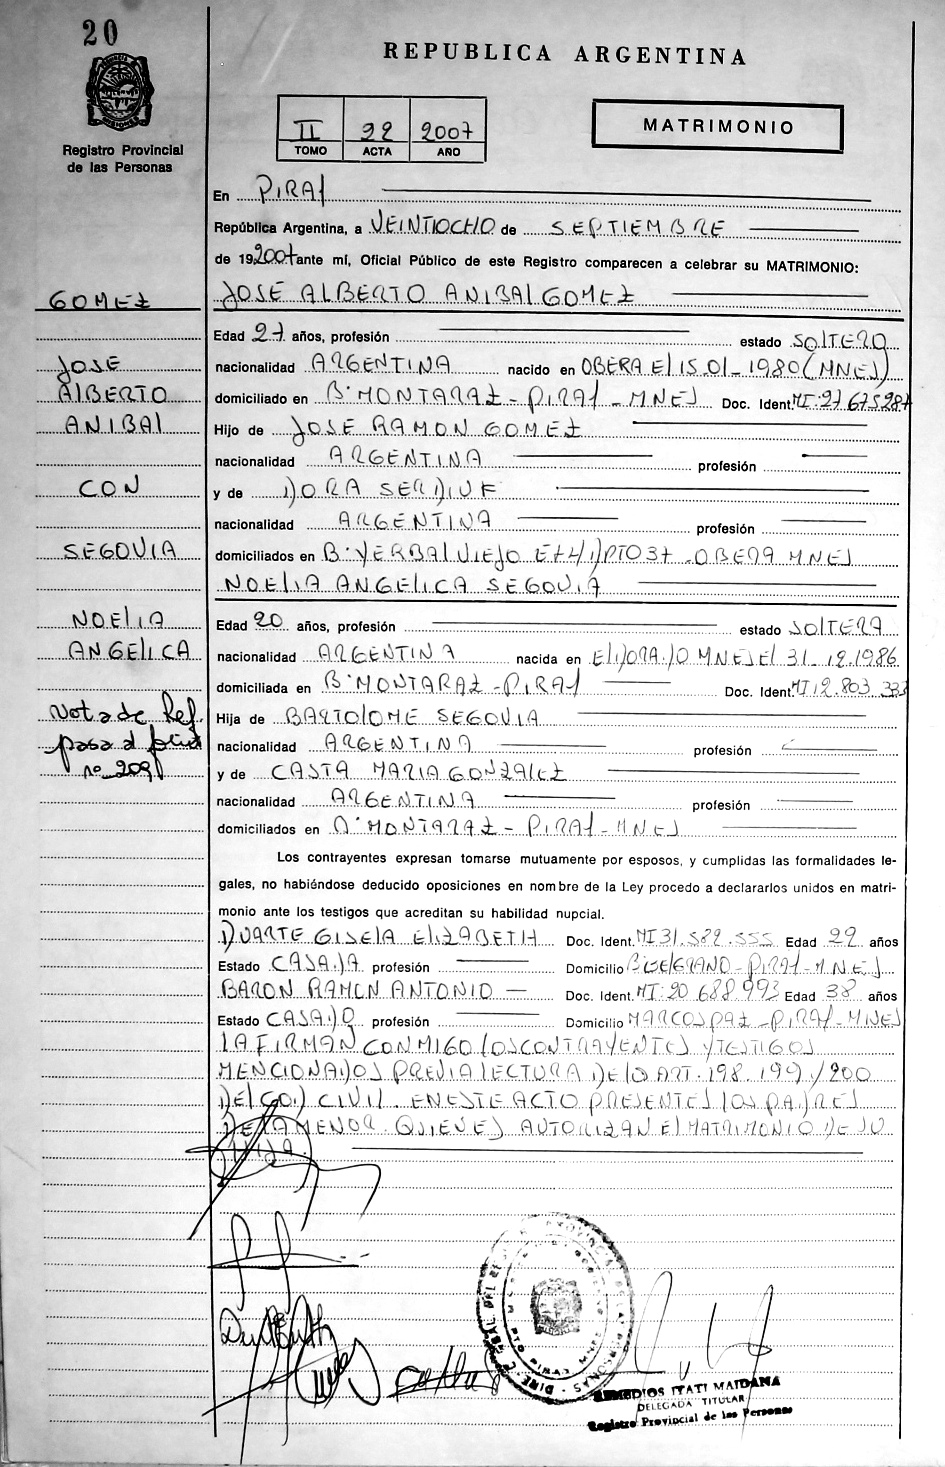 20
REPUBLICA ARGENTINA
Registro Provincial
de las Personas
II 22 2007
TOMO ACTA AÑO
MATRIMONIO
En PIRAI
República Argentina, a VEINTIOCHO de SEPTIEMBRE
de 192007 ante mí, Oficial Público de este Registro comparecen a celebrar su MATRIMONIO:
GOMEZ
JOSE ALBERTO ANIBAL GOMEZ
Edad 27 años, profesión estado SOLTERO
JOSE
nacionalidad ARGENTINA nacido en OBERA El 15.01-1980 (MNES)
ALBERTO
domiciliado en Bº MONTARAZ - PIRAI - MNES Doc. Ident. MI:27675287
ANIBAL
Hijo de JOSE RAMON GOMEZ
nacionalidad ARGENTINA profesión
CON
y de DORA
nacionalidad ARGENTINA profesión
SEGOVIA
domiciliados en Bº YERBAL VIEJO DPTO 37 - OBERA MNES
NOELIA ANGELICA SEGOVIA
NOELIA
Edad 20 años, profesión estado SOLTERA
ANGELICA
nacionalidad ARGENTINA nacida en ELDORADO MNES El 31.12.1986
domiciliada en Bº MONTARAZ - PIRAI Doc. Ident.
Nota de Ref.
Hija de BARTOLOME SEGOVIA
pasa al folio
nacionalidad ARGENTINA profesión
nº 209
y de CASTA MARIA GONZALEZ
nacionalidad ARGENTINA profesión
domiciliados en Bº MONTARAZ - PIRAI - MNES
Los contrayentes expresan tomarse mutuamente por esposos, y cumplidas las formalidades le-
gales, no habiéndose deducido oposiciones en nombre de la Ley procedo a declararlos unidos en matri-
monio ante los testigos que acreditan su habilidad nupcial.
DUARTE GISELA ELIZABETH Doc. Ident. MI 31.582.555 Edad 22 años
Estado CASADA profesión Domicilio Bº BELGRANO - PIRAI - MNES
BARON RAMON ANTONIO Doc. Ident. MI:20 688.993 Edad 38 años
Estado CASADO profesión Domicilio MARCOS PAZ - PIRAI - MNES
LA FIRMAN CONMIGO LOS CONTRAYENTES Y TESTIGOS
MENCIONADOS PREVIA LECTURA DE LOS ART. 198. 199 / 200
DEL COD CIVIL. EN ESTE ACTO PRESENTES LOS PADRES
DE LA MENOR. QUIENES AUTORIZAN El MATRIMONIO DE SU
HIJA
REMEDIOS ITATI MAIDANA
DELEGADA TITULAR
Registro Provincial de las Personas